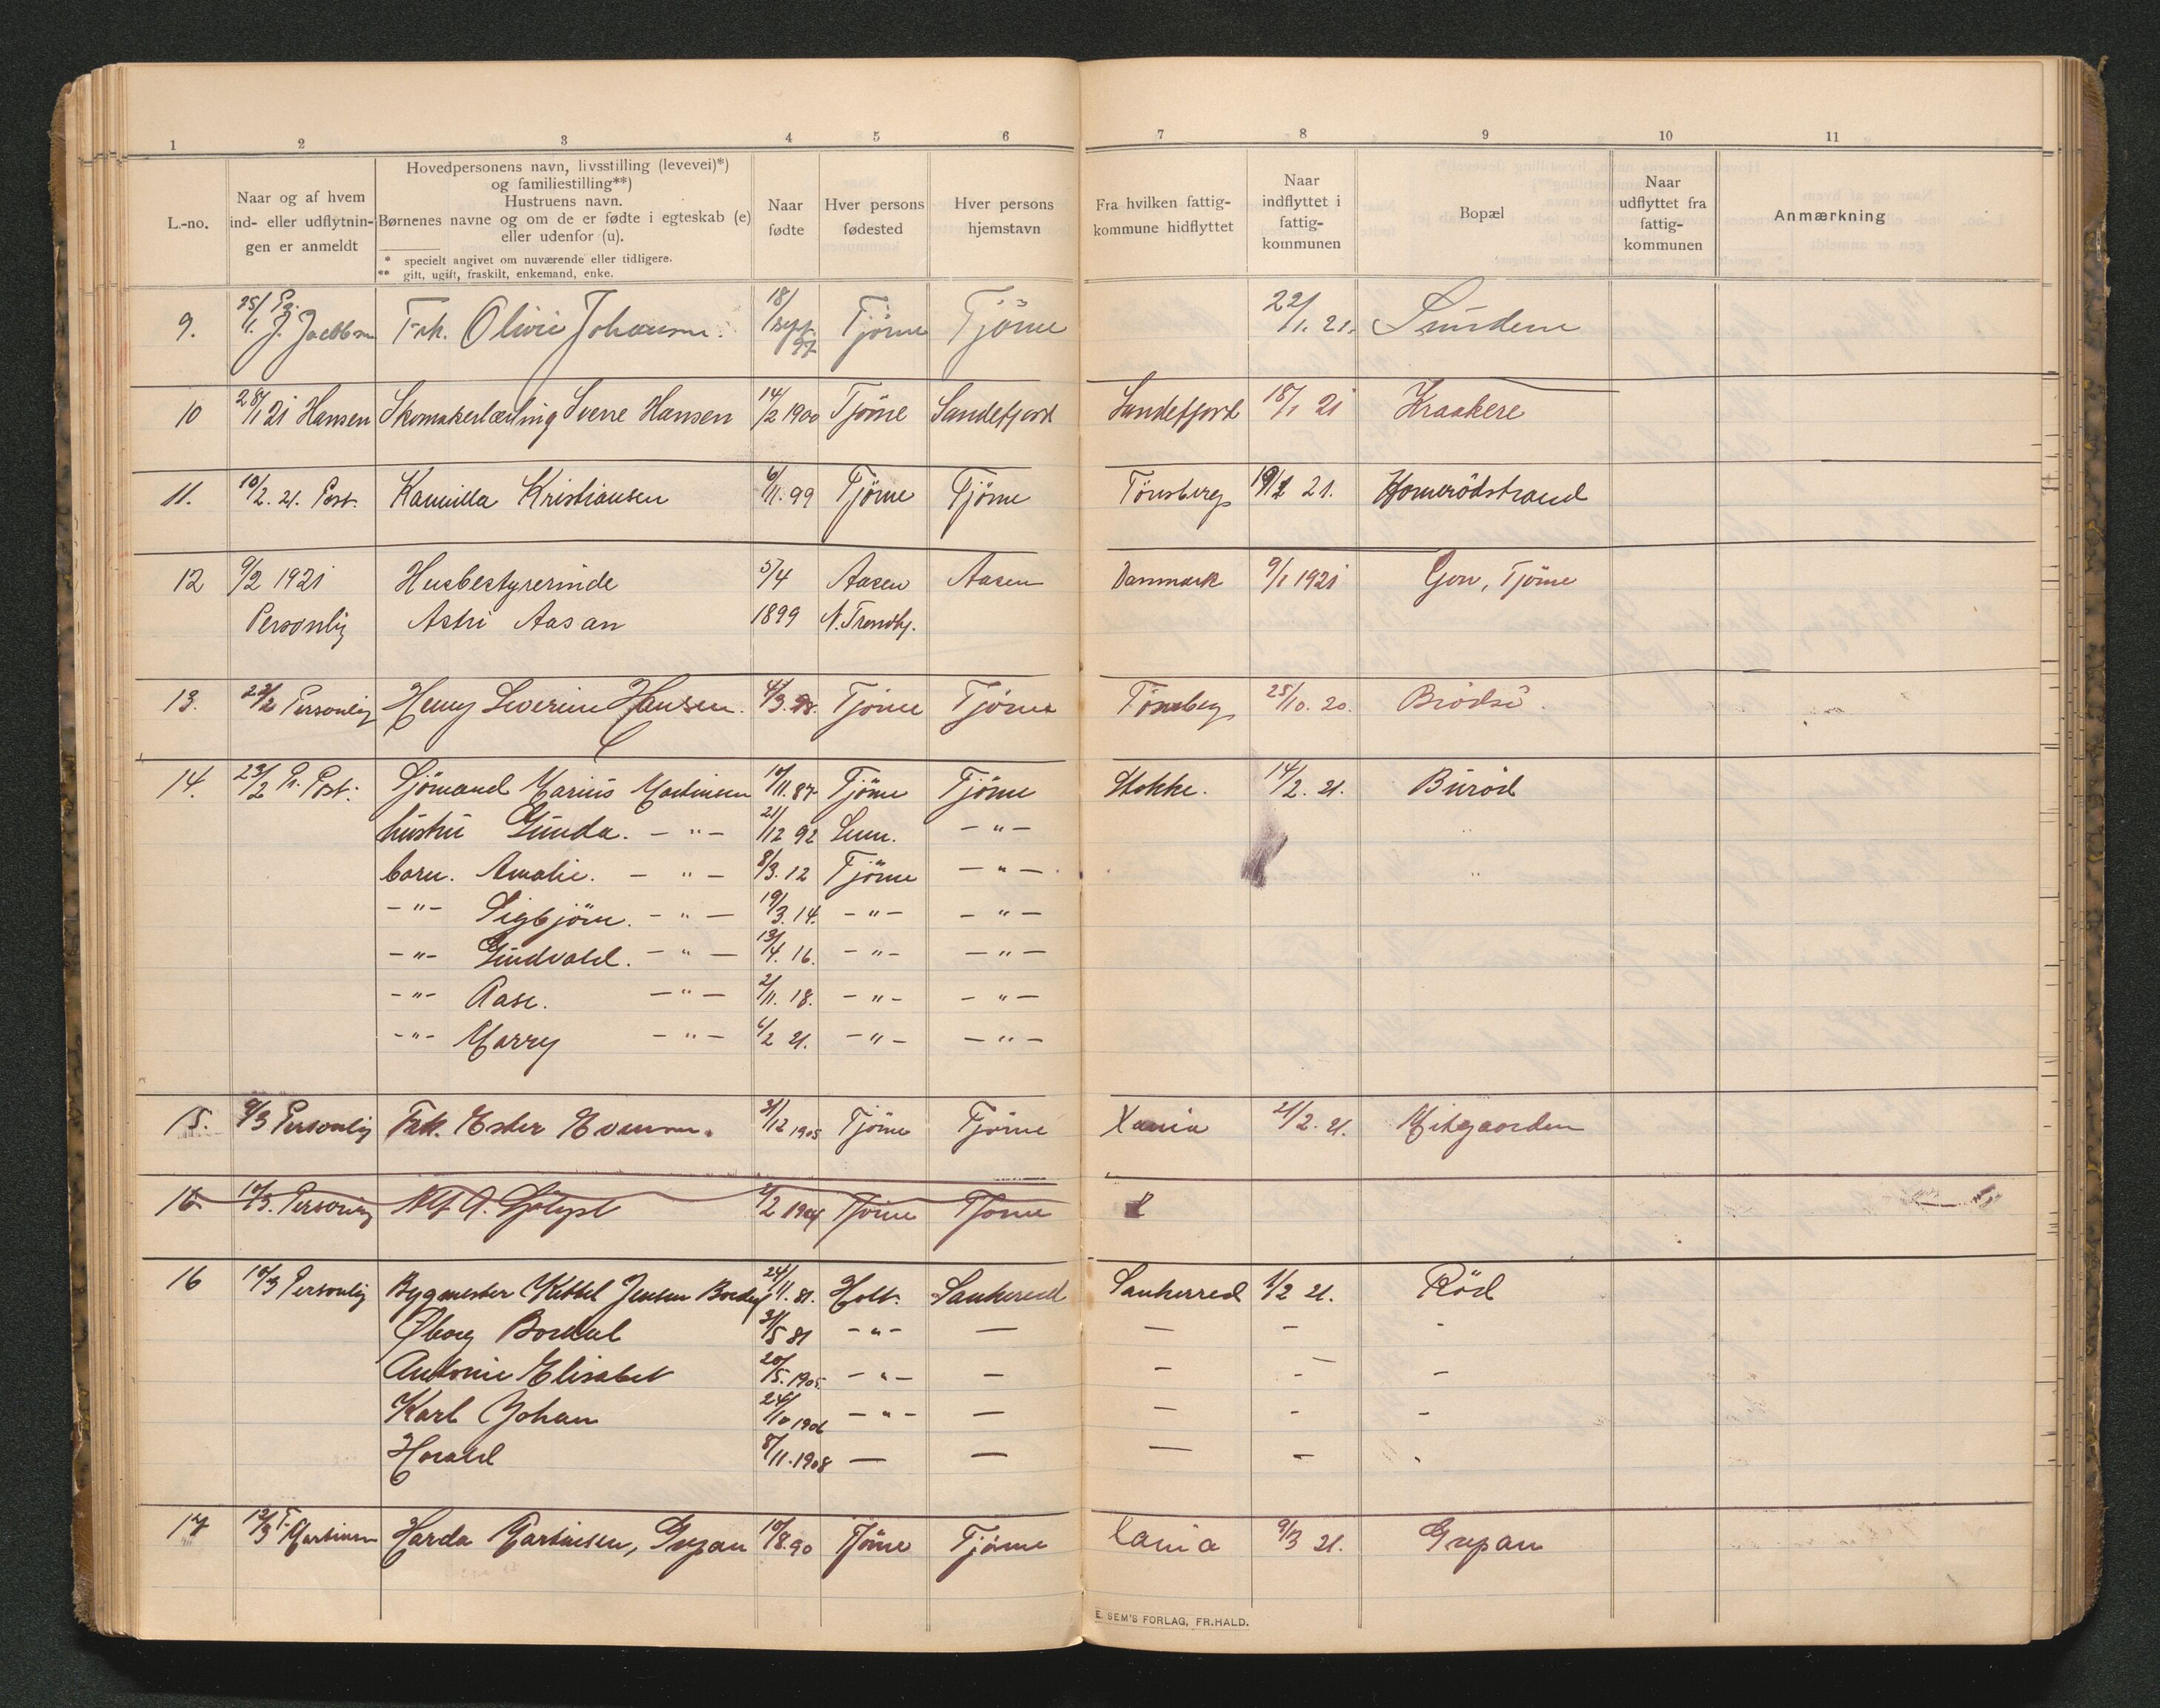 1 2 3 4 5 6 7 8 9 10 11
L.-no.
Naar og af hvem
ind- eller udflytnin-
gen er anmeldt
Hovedpersonens navn, livsstilling (levevei)*)
og familiestilling**)
Hustruens navn.
Børnenes navne og om de er fødte i egteskab (e)
eller udenfor (u).
* specielt angivet om nuværende eller tidligere.
** gift, ugift, fraskilt, enkemand, enke.
Naar
fødte
Hver persons
fødested
Hver persons
hjemstavn
Fra hvilken fattig-
kommune hidflyttet
Naar
indflyttet i
fattig-
kommunen
Bopæl
Naar
udflyttet fra
fattig-
kommunen
Anmærkning
9. 25/1. Pr. J. Jacobsen Frk. Olivie Johansen. 18/sept. 97 Tjöme Tjöme 22/1. 21. Sundene
10 28/1 21 Hansen Skomakerlærling Sverre Hansen 14/2 1900 Tjöme Sandefjord Sandefjord 18/1 21 Kraakere
11. 10/2. 21. Post. Kamilla Kristiansen 6/11. 99 Tjöme Tjöme Tönsberg 21. Homerödstrand
12 9/2 1921 Husbestyrerinde 5/4 Aasen Aasen Danmark 9/1 1921 Gon, Tjöme
Personlig Astri Aasan 1899 N. Trondhj.
13. 22/2 Personlig Henry Severin Hansen. 4/3. 98. Tjöme Tjöme Tönsberg 25/10. 20. Brödsö.
14. 23/2 Pr. Post. Sjömand Marius Martinsen 10/11. 87 Tjöme Tjöme Stokke. 14/2. 21. Buröd
hustru Gunda. - " - 21/12 92 Sem. - " -
barn. Amalie. - " - 8/3. 12 Tjöme - " -
- " - Sigbjörn. - " - 19/3. 14. - " - - " -
- " - Gundvald. - " - 13/4. 16. - " - - " -
- " - Aase. - " - 2/11. 18. - " - - " -
- " - Marry - " - 6/2 21. - " - - " -
15. 9/3 Personlig Frk. Ester Evensen. 31/12 1905 Tjöme Tjöme Xania 21/2. 21. Mitgaarden
16 10/3. Personlig Alf A. 2/2 1904 Tjöme Tjöme
16 10/3 Personlig Bygmester Kittel Jensen Bordal 24/11. 81. Holt. Sanherred Sanherred 1/2 21. Röd
Öborg Bordal 31/5 81 - " - - - - -
Antonie Elisabet 20/5. 1905. - " - - - - -
Karl Johan 24/10 1906 - " - - - - -
Harald 8/11. 1908 - - - -
17 12/3 F. Martinsen Harda Martinsen, Grepan 10/8. 90 Tjöme Tjöme Xania 9/3 21. Grepan
E. SEM'S FORLAG, FR.HALD.